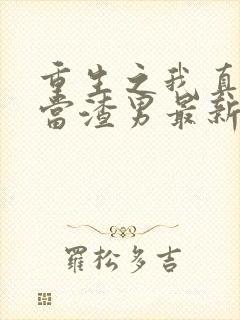 重生之我真
当渣男最新
羅松多吉